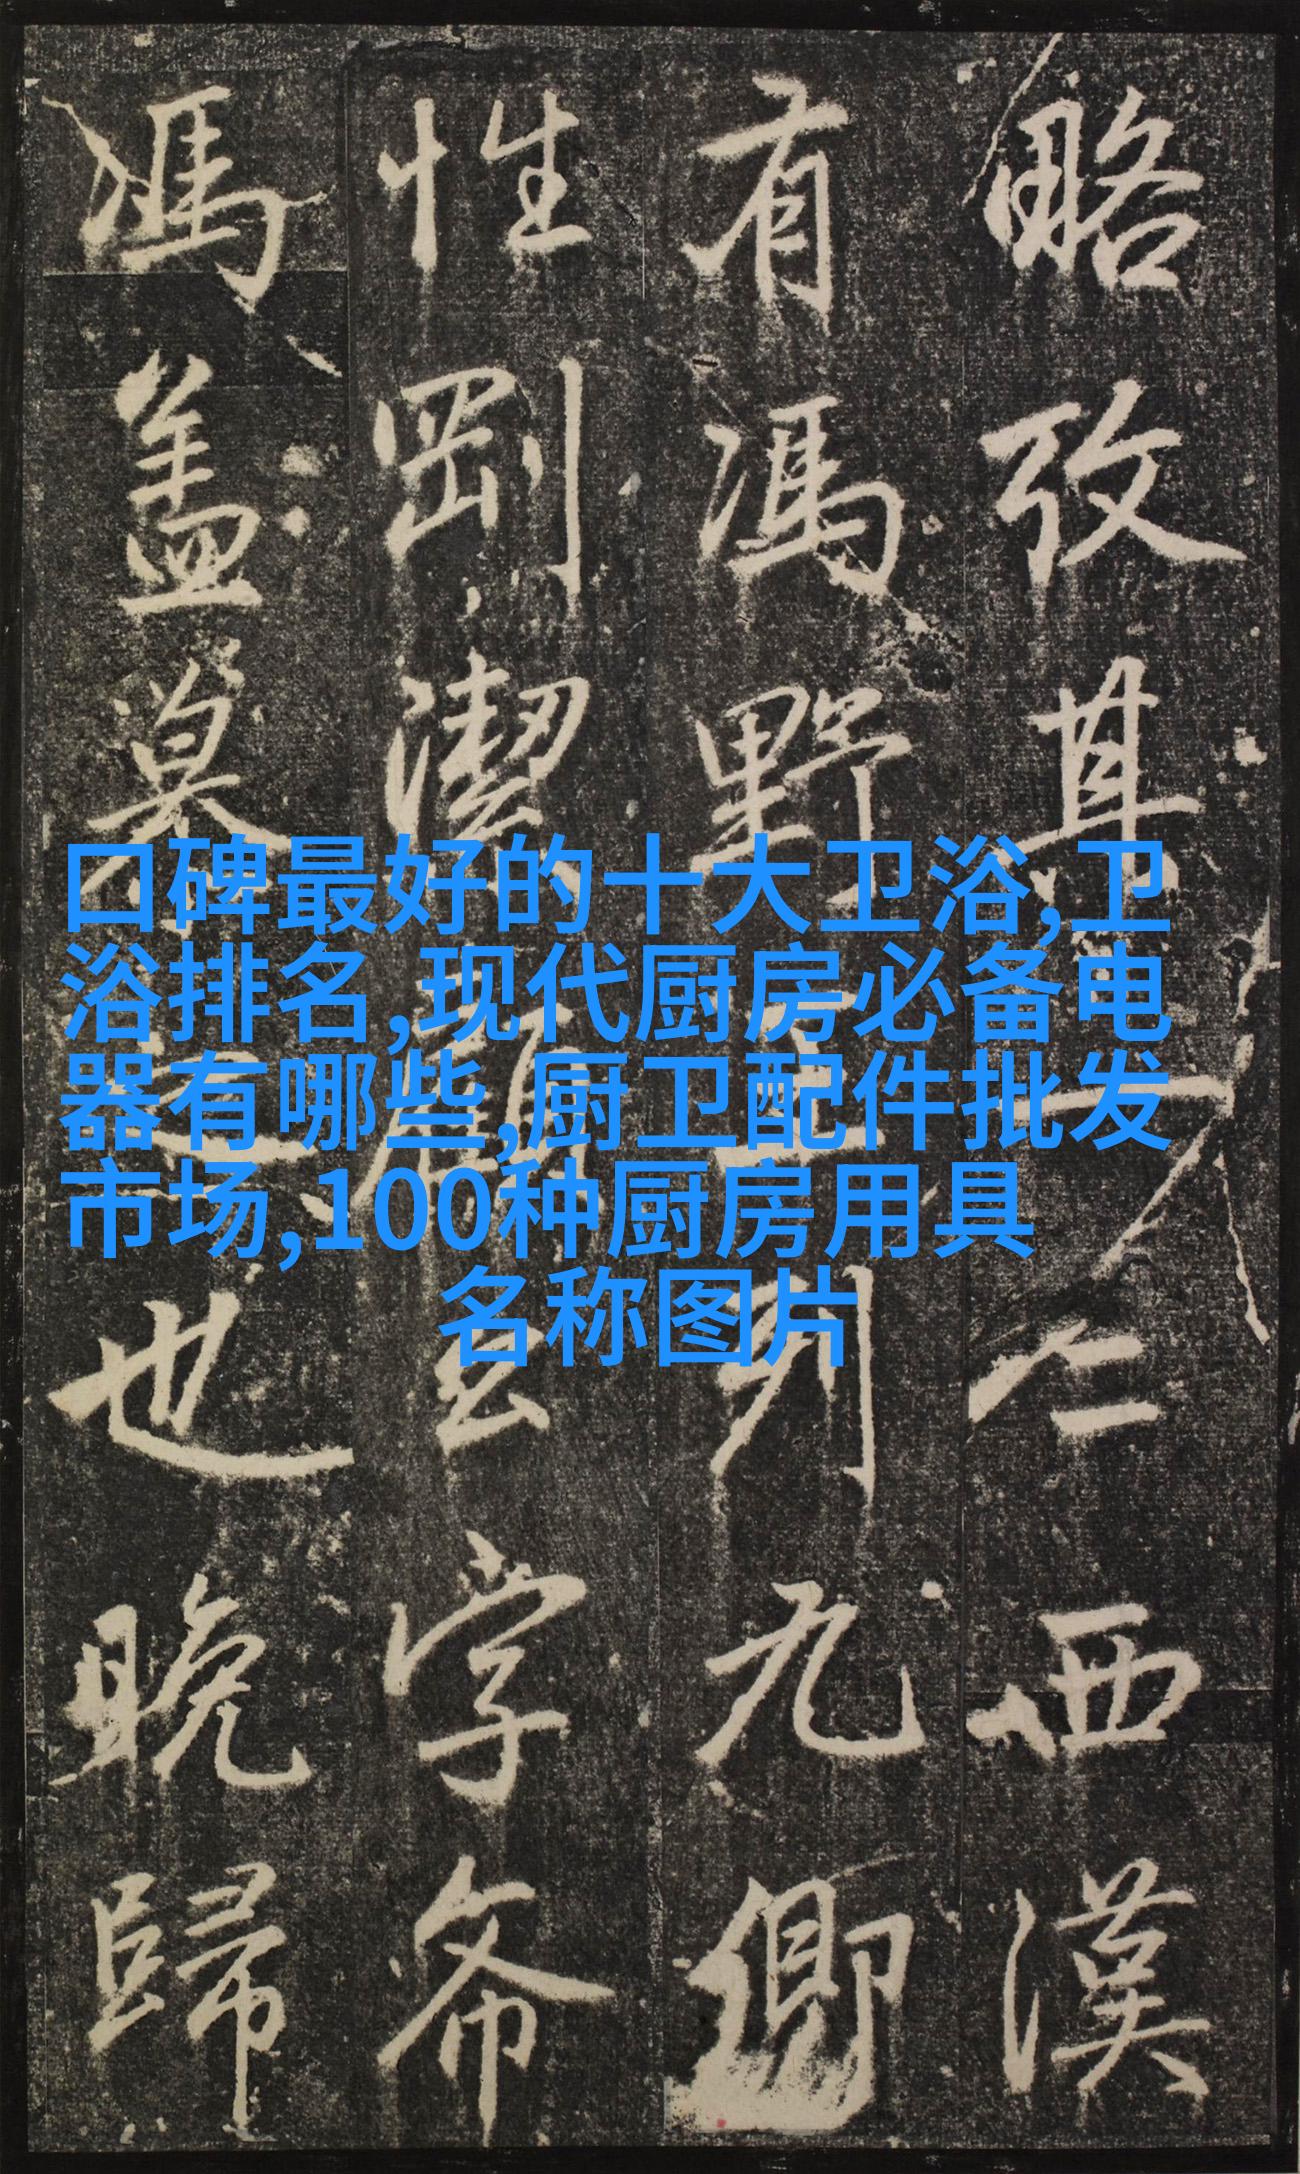 口碑最好的十大卫浴,卫
浴排名,现代厨房必备电
器有哪些,厨卫配件批发
市场,100种厨房用具
名称图片
略攷其仁西漢
有馮野王列九卿
性剛潔字希
馮盖慕之也晚歸